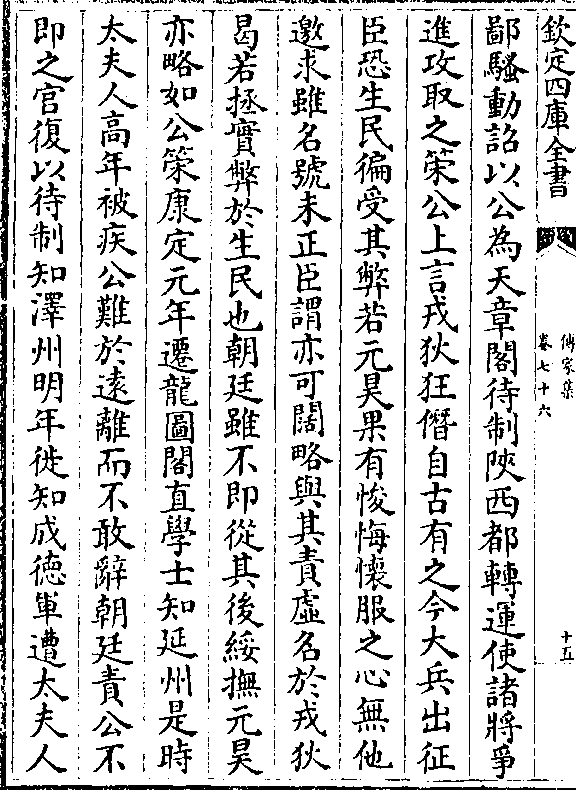 欽定四庫全書
傳家集
卷七十六
十五
鄙騷動詔以公為天章閣待制陜西都轉運使諸將爭
進攻取之策公上言戎狄狂僭自古有之今大兵出征
臣恐生民徧受其弊若元昊果有悛悔懷服之心無他
邀求雖名號未正臣謂亦可闊略與其責虛名於戎狄
曷若拯實弊於生民也朝廷雖不即從其後綏撫元昊
亦略如公策康定元年遷龍圖閣直學士知延州是時
太夫人高年被疾公難於逺離而不敢辭朝廷責公不
即之官復以待制知澤州明年徙知成徳軍遭太夫人